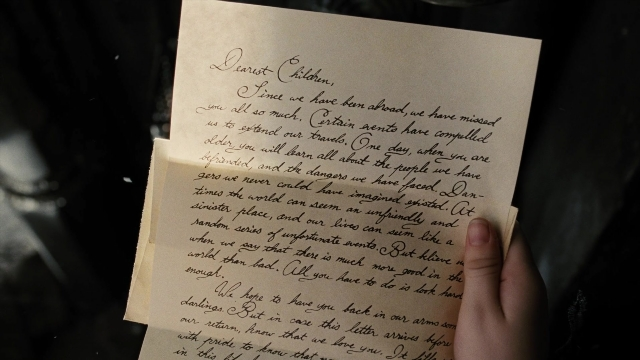 Dearest Children,
Since we have been abroad, we have missed
you all so much. Certain events have compelled
us to extend our travels. One day, when you are
older, you will learn all about the people we have
befriended, and the dangers we have faced. Dan-
gers we never could have imagined existed. At
times the world can seem an unfriendly and
sinister place, and our lives can seem like a
random series of unfortunate events. But believe
when we say that there is much more good in the
world than bad. All you have to do is look hard
enough.
We hope to have you back in our arms
darlings. But in case this letter arrives
our return, know that we love you. It fills
with pride to know that
in this life